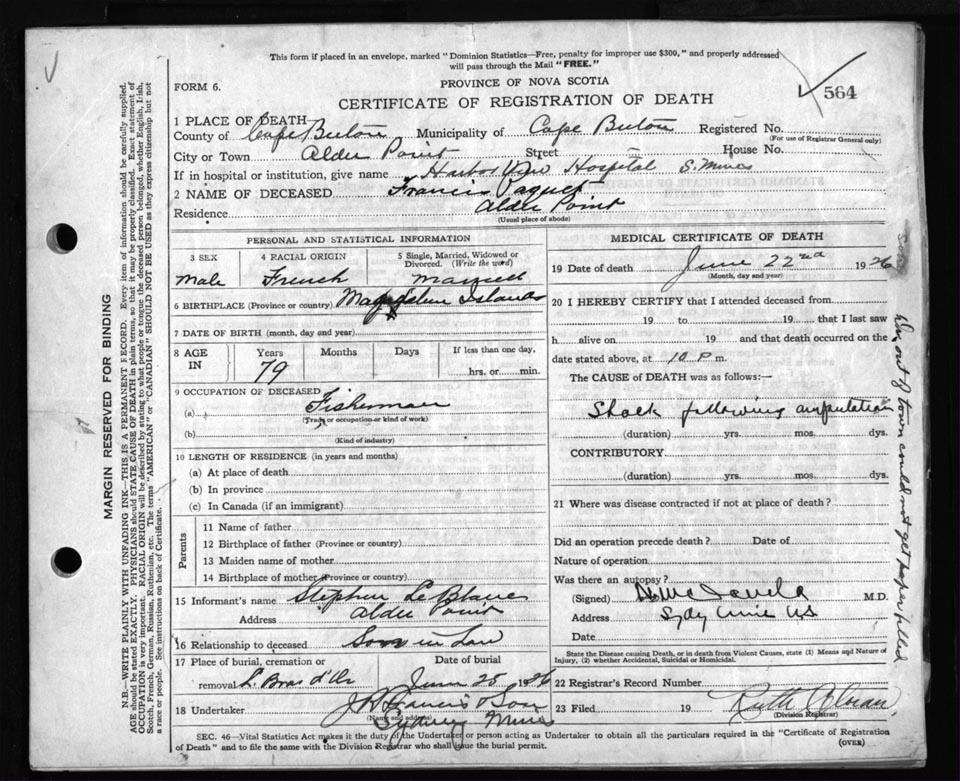 This form if placed in an envelope, marked "Dominion Statistics—Free, penalty for improper use $300," and properly addressed
will pass through the Mail "FREE."
564
FORM 6.
PROVINCE OF NOVA SCOTIA
CERTIFICATE OF REGISTRATION OF DEATH
1 PLACE OF DEATH
County of Cape Breton Municipality of Cape Breton Registered No.
(For use of Registrar General only)
City or Town Alder Point Street House No.
If in hospital or institution, give name Harbor View Hospital S. Mines
2 NAME OF DECEASED Francis Paquet
Residence Alder Point
(Usual place of abode)
PERSONAL AND STATISTICAL INFORMATION
3 SEX 4 RACIAL ORIGIN 5 Single, Married, Widowed or
Divorced. (Write the word)
Male French Married
6 BIRTHPLACE (Province or country) Magdalen Islands
7 DATE OF BIRTH (month, day and year)
8 AGE IN Years Months Days If less than one day,
79 hrs. or min.
9 OCCUPATION OF DECEASED
(a) Fisherman
(Trade or occupation or kind of work)
(b)
(Kind of industry)
10 LENGTH OF RESIDENCE (in years and months)
(a) At place of death
(b) In province
(c) In Canada (if an immigrant)
Parents
11 Name of father
12 Birthplace of father (Province or country)
13 Maiden name of mother
14 Birthplace of mother (Province or country)
15 Informant's name Stephen LeBlanc
Address Alder Point
16 Relationship to deceased Son in Law
17 Place of burial, cremation or Date of burial
removal L. Bras d'Or June 25 1926
18 Undertaker J W Francis & Son
(Name and address)
Sydney Mines
MEDICAL CERTIFICATE OF DEATH
19 Date of death June 22nd 1926
(Month, day and year)
20 I HEREBY CERTIFY that I attended deceased from
19 to 19 that I last saw
h alive on 19 and that death occurred on the
date stated above, at 10 P m.
The CAUSE of DEATH was as follows:—
Shock following amputation
(duration) yrs. mos. dys.
CONTRIBUTORY
(duration) yrs. mos. dys.
21 Where was disease contracted if not at place of death?
Did an operation precede death? Date of
Nature of operation
Was there an autopsy?
(Signed) M.D.
Address Sydy Mines NS
Date
State the Disease causing Death, or in death from Violent Causes, state (1) Means and Nature of
Injury, (2) whether Accidental, Suicidal or Homicidal.
22 Registrar's Record Number
23 Filed 19 Ruth
(Division Registrar)
SEC. 46—Vital Statistics Act makes it the duty of the Undertaker or person acting as Undertaker to obtain all the particulars required in the "Certificate of Registration
of Death" and to file the same with the Division Registrar who shall issue the burial permit. (OVER)
Dr. out of town could not get paper filled
MARGIN RESERVED FOR BINDING
N.B.—WRITE PLAINLY, WITH UNFADING INK—THIS IS A PERMANENT RECORD. Every item of information should be carefully supplied.
AGE should be stated EXACTLY. PHYSICIANS should STATE CAUSE OF DEATH in plain terms, so that it may be properly classified. Exact statement of
OCCUPATION is very important. RACIAL ORIGIN will be described by stating to what people or tongue the deceased person belonged, whether English, Irish,
Scotch, French, German, Russian, Ruthenian, etc. The terms "AMERICAN" or "CANADIAN" SHOULD NOT BE USED as they express citizenship but not
a race or people. See instructions on back of Certificate.